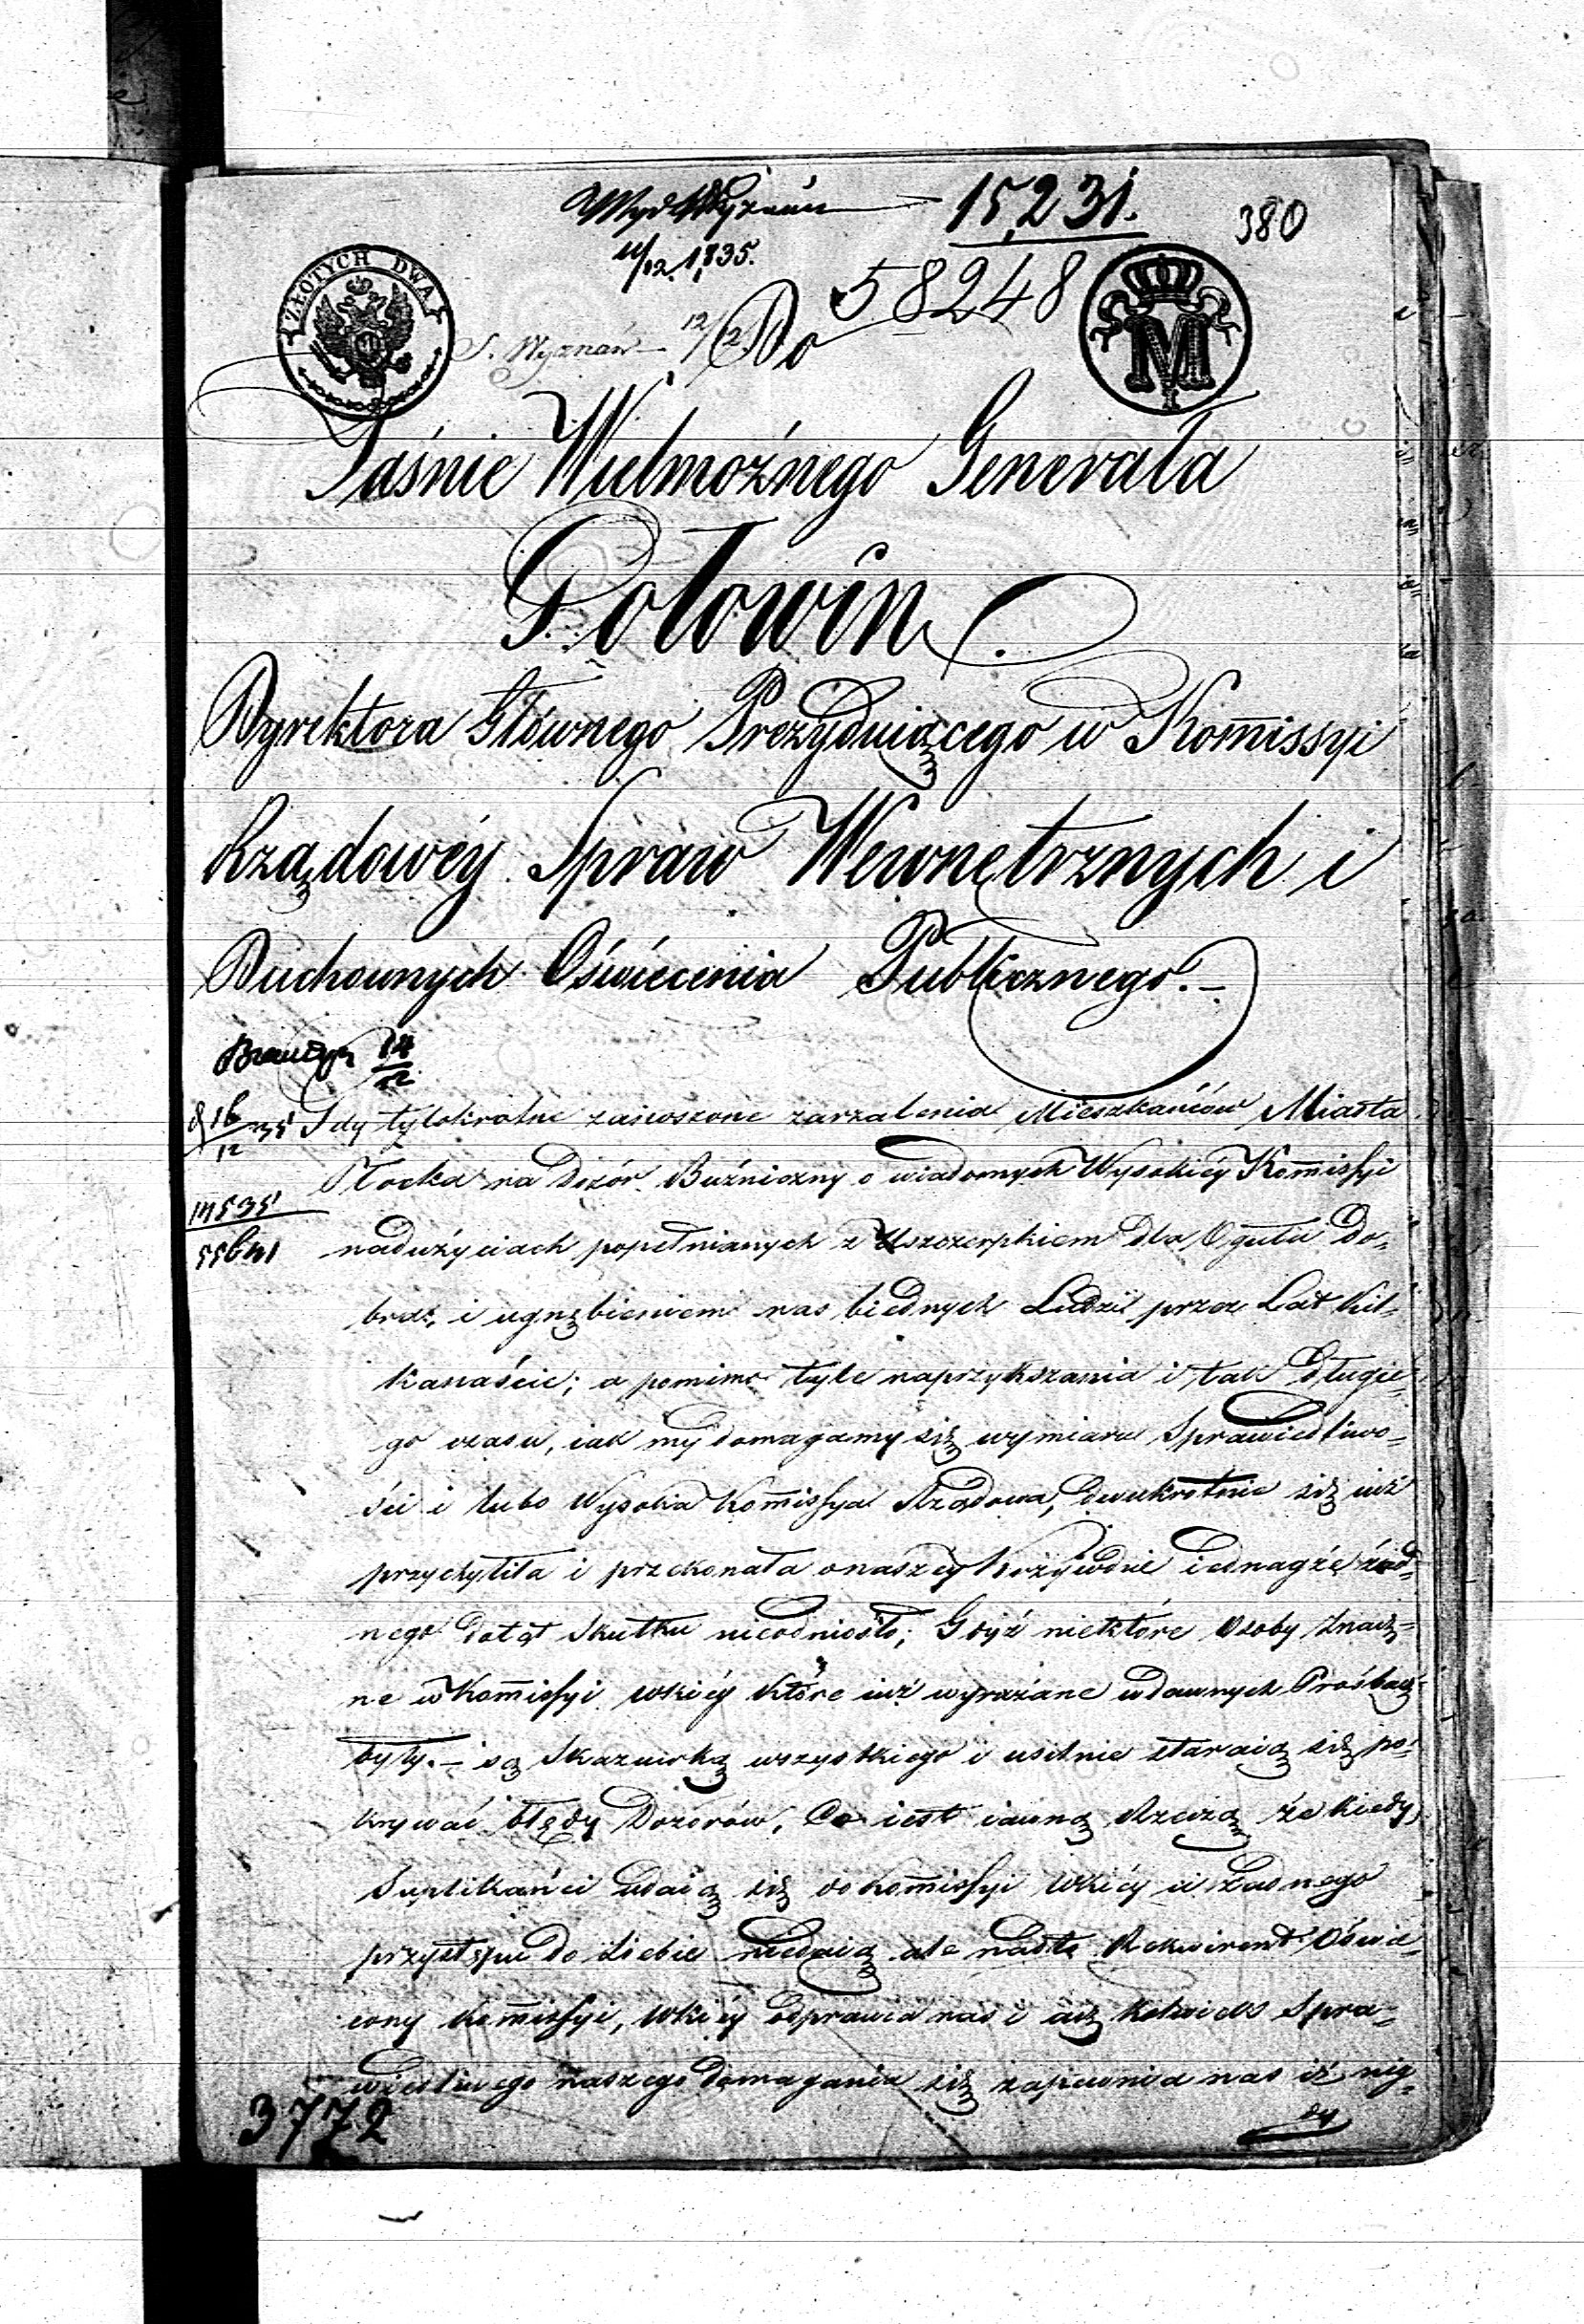 Wyd. Wyznań 15,231.
380
11/12 1835.
58248
ZŁOTYCH DWA
M
S. Wyznań 12/12 Do
Jaśnie Wielmożnego Generała
Gołowin.
Dyrektora Głównego Prezyduiącego w Kommissyi
Rządowéy Spraw Wewnętrznych i
Duchownych Oświecenia Publicznego.-
14/12
16/12 35 Gdy tylokrotne zanoszone zażalenia Mieszkańców Miasta
Płocka na Dozór Buźniczny o wiadomych Wysokiéy Kommissyi
nadużyciach popełnianych z Uszczerpkiem dla Ogułu Do=
bra, i ugnębieniem nas biednych Ludzi przez Lat kil=
kanaście; a pomimo tyle naprzykszania i tak Długie=
go czasu, iak my domagamy się wymiaru Sprawiedliwo=
ści i lubo Wysoka Kommissya Rządowa, dwukrotnie się iuż
przychyliła i przekonała o naszéy Krzywdzie iednagże żad=
nego dotąt Skutku nieodniosło; Gdyż niektóre Osoby Znacz=
ne w Kommissyi Wkiéy które iuż wyrażane w dawnych Prośbach
były.- są Skazuwką wszystkiego i usilnie staraią się po=
krywać błędy Dozorów, Co iest iawną Rzeczą że kiedy
Suplikańci udaią się do Kommissyi Wkiéy i żadnego
przystępu do Siebie niedaią ale Rekwirent Oświe=
cony Kommissyi, Wkiéy odprawia nas i Spra=
wiedliwego naszego domagania się zapewnia nas iż nig=
dy
3772